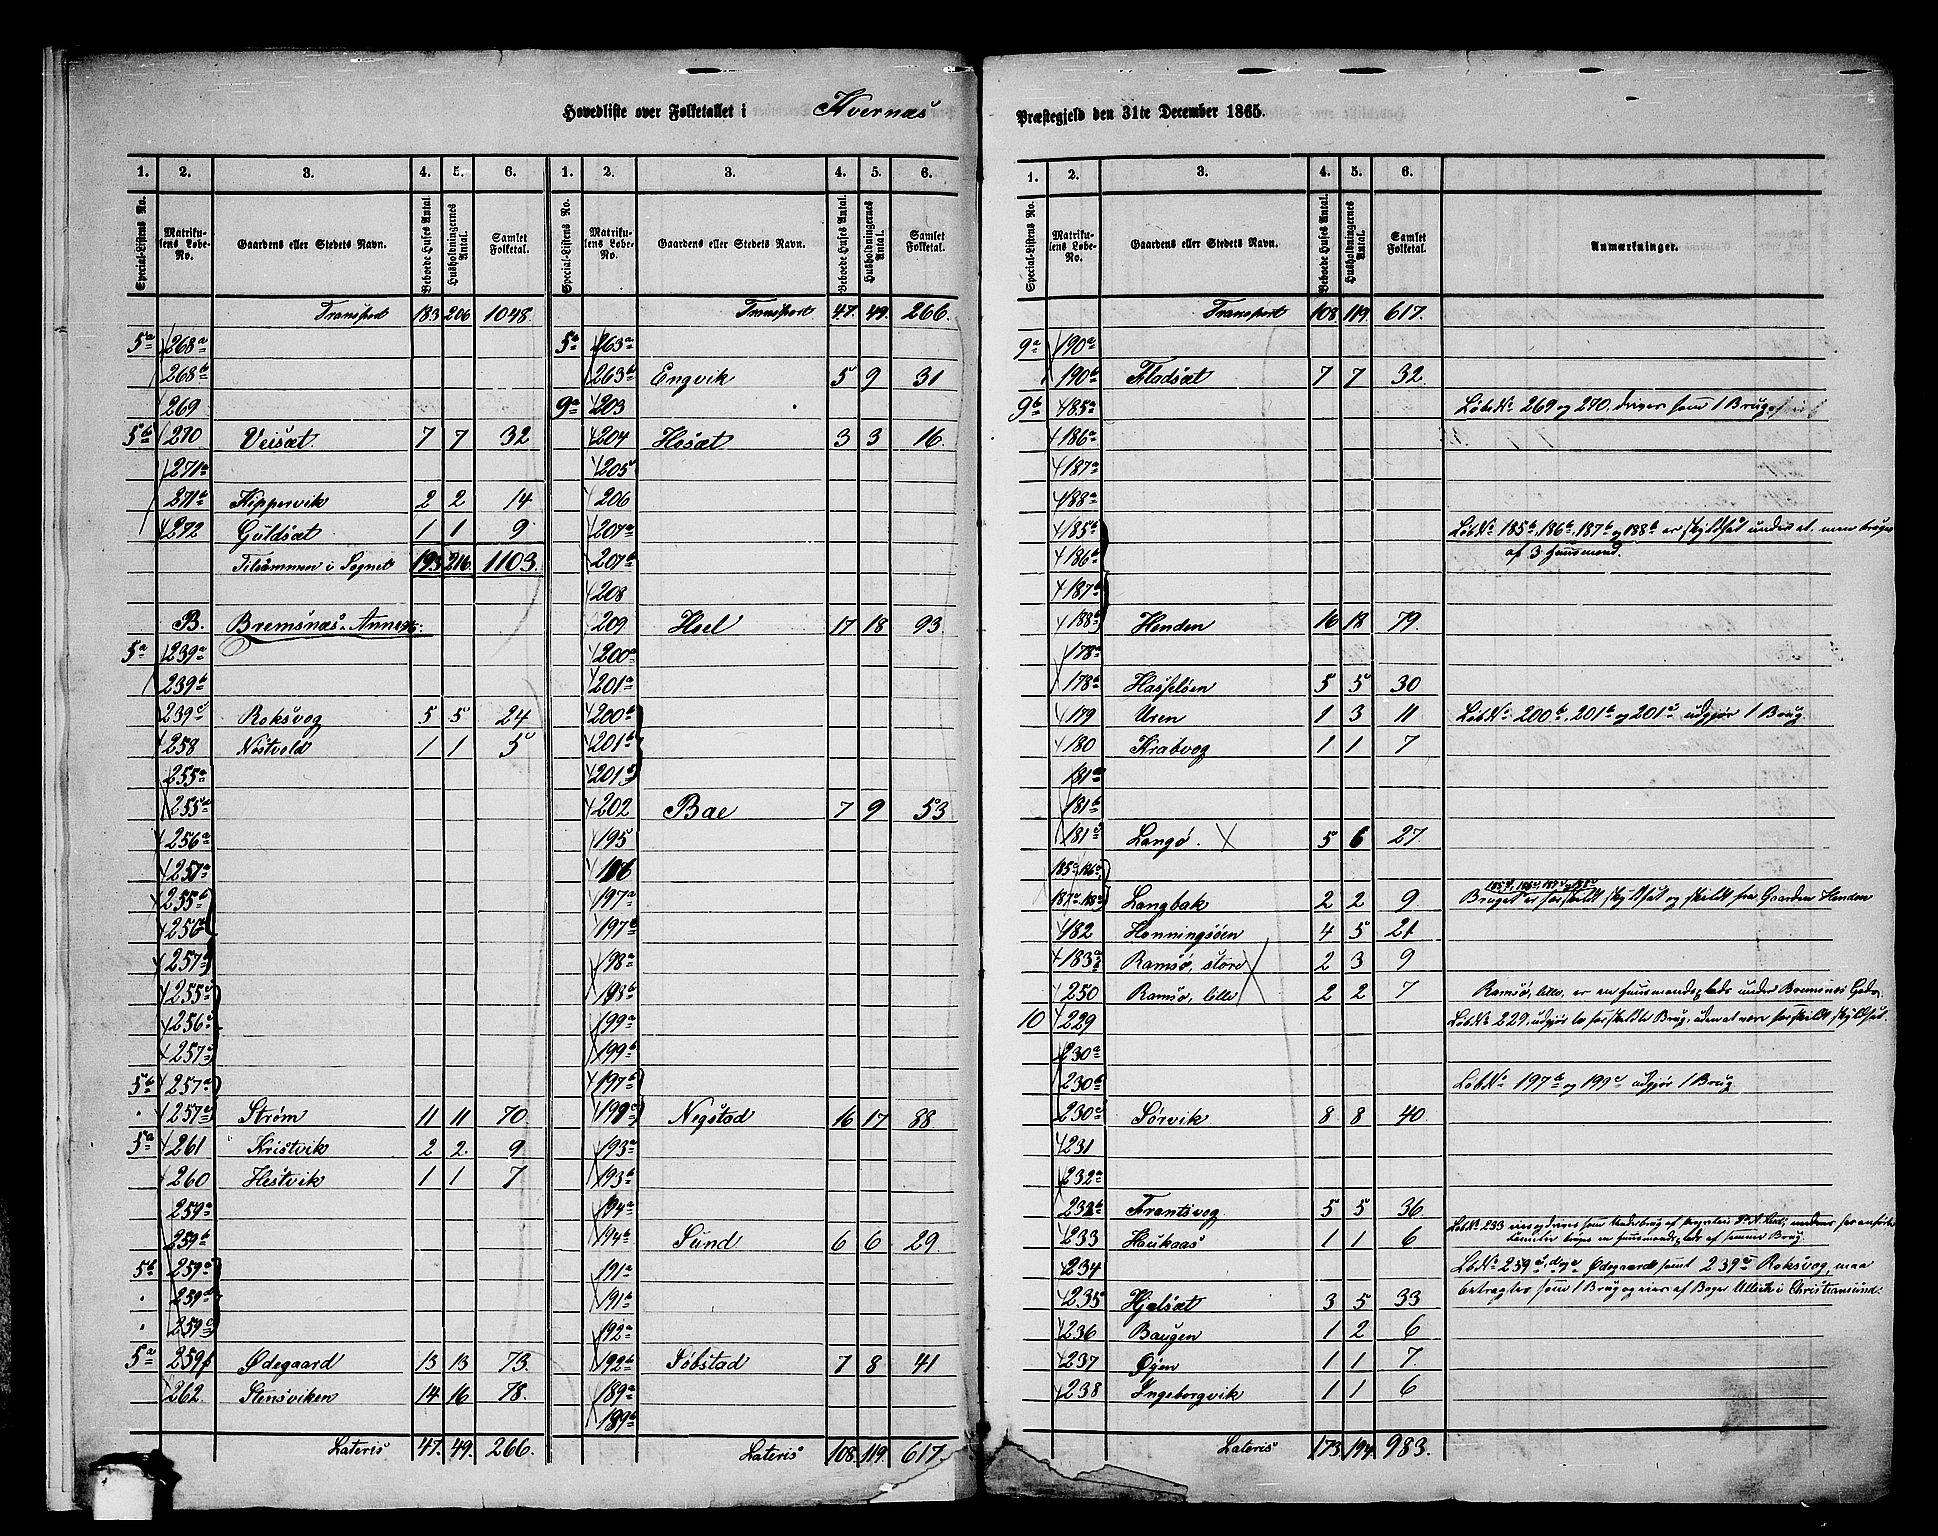 Hovedliste over Folketallet i Kvernæs
Præstegjeld den 31te December 1865.
1. 2. 3. 4. 5. 6.
Special-Listens No. Matrikulens Løbe-No. Gaardens eller Stedets Navn. Beboede Huses Antal. Husholdningernes Antal. Samlet Folketal.
Transport 183 206 1048
5a 268a
268b
269
5b 270 Veisæt. 7 7 32
271a
271b Kippervik 2 2 14
272 Guldsæt 1 1 9
Tilsammen i Sognet 193 216. 1103.
B. Bremsnæs-Annex:
5a 239a
239b
239c Roksvog 5 5 24
258 Nøstvold 1 1 5
255a
255a
256a
257a
255b
256b
257b
255c
256c
257c
5b 257a
" 257c Strøm 11 11 70
5a 261 Kristvik 2 2 9
260 Hestvik 1 1 7
259a
259b
5b 259c
" 259d
" 259e
5a 259f Ødegaard 13 13 73.
262 Stensviken 14 16 78.
Lateris 47. 49. 266.
1. 2. 3. 4. 5. 6.
Special-Listens No. Matrikulens Løbe-No. Gaardens eller Stedets Navn. Beboede Huses Antal. Husholdningernes Antal. Samlet Folketal.
Transport 47. 49. 266.
5a 263a
263b Engvik 5 9 31
9a 203
204 Hosæt 3 3 16.
205
206
207a
207b
208
209 Hoel 17 18 93.
200a
201a
200b
201b
201c
202 Bae 7 9 53
195
196
197a
197b
198a
198b
199a
199b
197b
199c Negstad 16 17 88
193a
193b
194a
194b Sund 6 6 29
191a
191b
192a
192b Søbstad 7 8 41
189a
189b
Lateris 108. 119. 617.
1. 2. 3. 4. 5. 6.
Special-Listens No. Matrikulens Løbe-No. Gaardens eller Stedets Navn. Beboede Huses Antal. Husholdningernes Antal. Samlet Folketal. Anmærkninger.
Transport 108. 119 617.
9a 190a
190b Fladsæt 7 7 32.
9b 185a LøbNo 269 og 270. drives som 1 Brug
186a
187a
188a
185b LøbNo 185b, 186b, 187b og 188b er skyldsat under et, men bruges
186b af 3 Husmænd.
187b
188b Henden 16 18 79.
178a
178b Hasseløen 5 5 30
179 Uren 1 3 11 LøbNo 200b, 201b og 201c udgjør 1 Brug.
180 Krabvog 1 1 7
181a
181b
181c Langø. 5 6 27.
185c 186c 185c, 186c, 187c og 188c
187c 188c Langbak 2 2 9 Bruget er særskildt skyldsat og skildt fra Gaarden Henden
182 Henningsøen 4 5 21
183a Ramsø, store 2 3 9
250 Ramsø, lille 2 2 7 Ramsø, lille, er en Husmandsplads under Bremsnes Gods.
10 229 LøbNo 229, udgjør to særskildte Brug, uden at være særskildt skyldsat.
230a
230b LøbNo 197b og 199c udgjør 1 Brug.
230c Sørvik 8 8 40.
231
232a
232b Frantsvog 5 5 36
233 Haukaas 1 1 6
234 LøbNo 259c, d og e Ødegaard samt 239a Roksvog, maa
235 Hjelsæt 3 5 33 betragtes som 1 Brug og eies af Boger Ulleth i Christiansund.
236 Baugen 1 2 6
237 Øyen 1 1 7.
238 Ingeborgvik 1 1 6
Lateris 173. 194. 983.